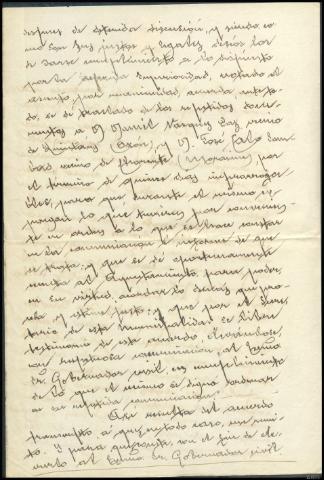 despues de detenida discusión, y siendo co
mo son tan justos y legales, deseosos
de darse cumplimiento a lo dispuesto
por la referida Superioridad, votado el
asunto, por unanimidad, acuerda antes to
do, se dé traslado de los repetidos docu
mentos a D. Manuel Vázquez Paz, vecino
de Quintáns (Ozón), y D. José Calo San
vecino de Chorente (Moraime), por
el término de quince días improrroga
bles, para que durante el mismo ex
pongan lo que tuvieren por convenien
te en orden a lo que se hace constar
en la comunicacion e informe de que
se trata; y que se dé oportunamente
cuenta al Ayuntamiento, para poder,
en su virtud, acordar lo demás que pro
ceda y estime justo; y que por el Secre
tario de esta municipalidad se libre
testimonio de este acuerdo, elevándose,
con respetuosa comunicacion, al Excmo
Sr. Gobernador civil, en cumplimiento
de lo que el mismo se digna ordenar
en su referida comunicacion.
Así resulta del acuerdo
transcrito, a que, en todo caso, me remi
to. Y para que conste, con el fin de ele
varlo al Excmo. Sr. Gobernador civil